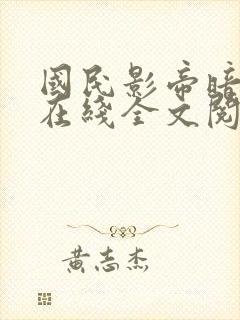 國民影帝暗
在綫全文閱
黄志杰